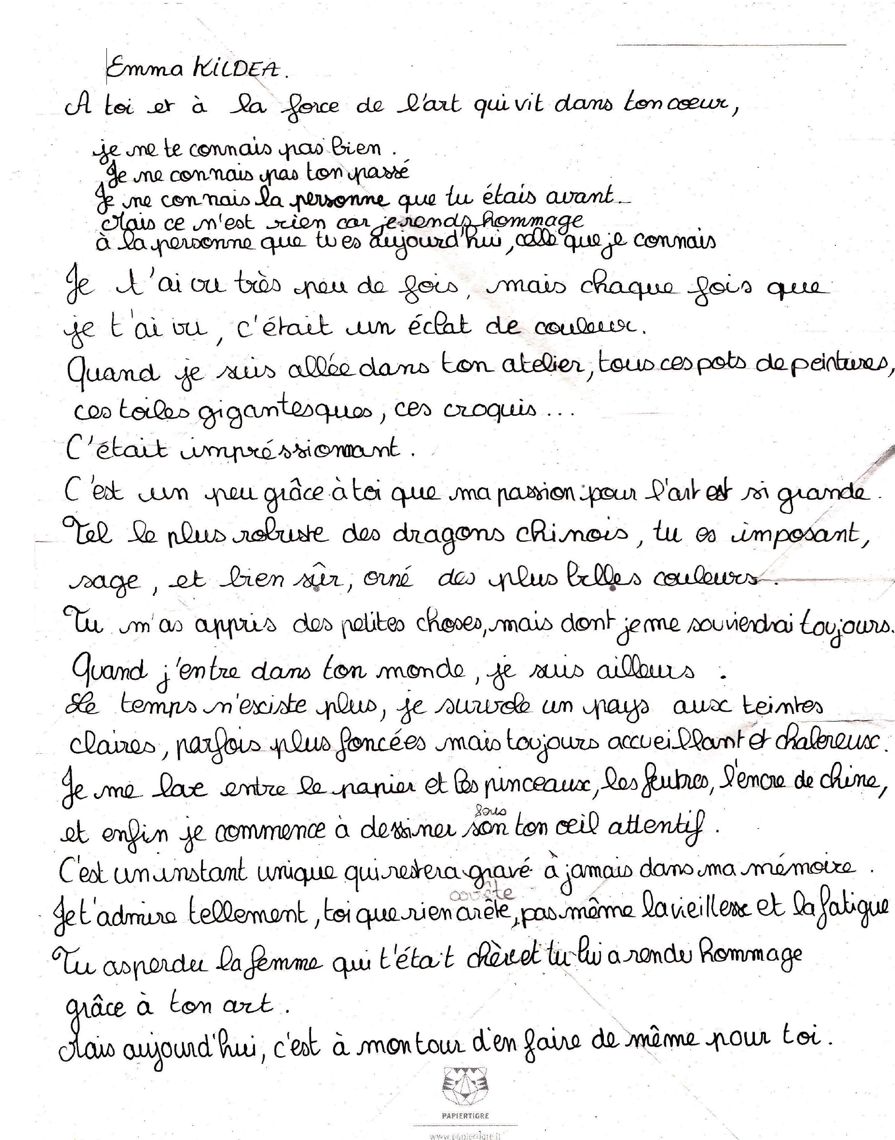 Emma KiLDEA.
A toi et à la force de l'art qui vit dans ton cœur,
je ne te connais pas bien.
Je ne connais pas ton passé
Je ne connais la personne que tu étais avant...
Mais ce n'est rien car je rends hommage
à la personne que tu es aujourd'hui, celle que je connais
Je t'ai vu très peu de fois, mais chaque fois que
je t'ai vu, c'était un éclat de couleur.
Quand je suis allée dans ton atelier, tous ces pots de peintures,
ces toiles gigantesques, ces croquis...
C'était impréssionnant.
C'est un peu grâce à toi que ma passion pour l'art est si grande.
Tel le plus robuste des dragons chinois, tu es imposant,
sage, et bien sûr, orné des plus belles couleurs.
Tu m'as appris des petites choses, mais dont je me souviendrai toujours.
Quand j'entre dans ton monde, je suis ailleurs.
Le temps n'existe plus, je survole un pays aux teintes
claires, parfois plus foncées mais toujours accueillant et chaleureux.
Je me love entre le papier et les pinceaux, les feutres, l'encre de chine,
sous
et enfin je commence à dessiner son ton œil attentif.
C'est un instant unique qui restera gravé à jamais dans ma mémoire.
arrête
Je t'admire tellement, toi que rien arête, pas même la vieillesse et la fatigue
Tu as perdu la femme qui t'était chère et tu lui a rendu hommage
grâce à ton art.
Mais aujourd'hui, c'est à mon tour d'en faire de même pour toi.
PAPIERTIGRE
www.papiertigre.fr